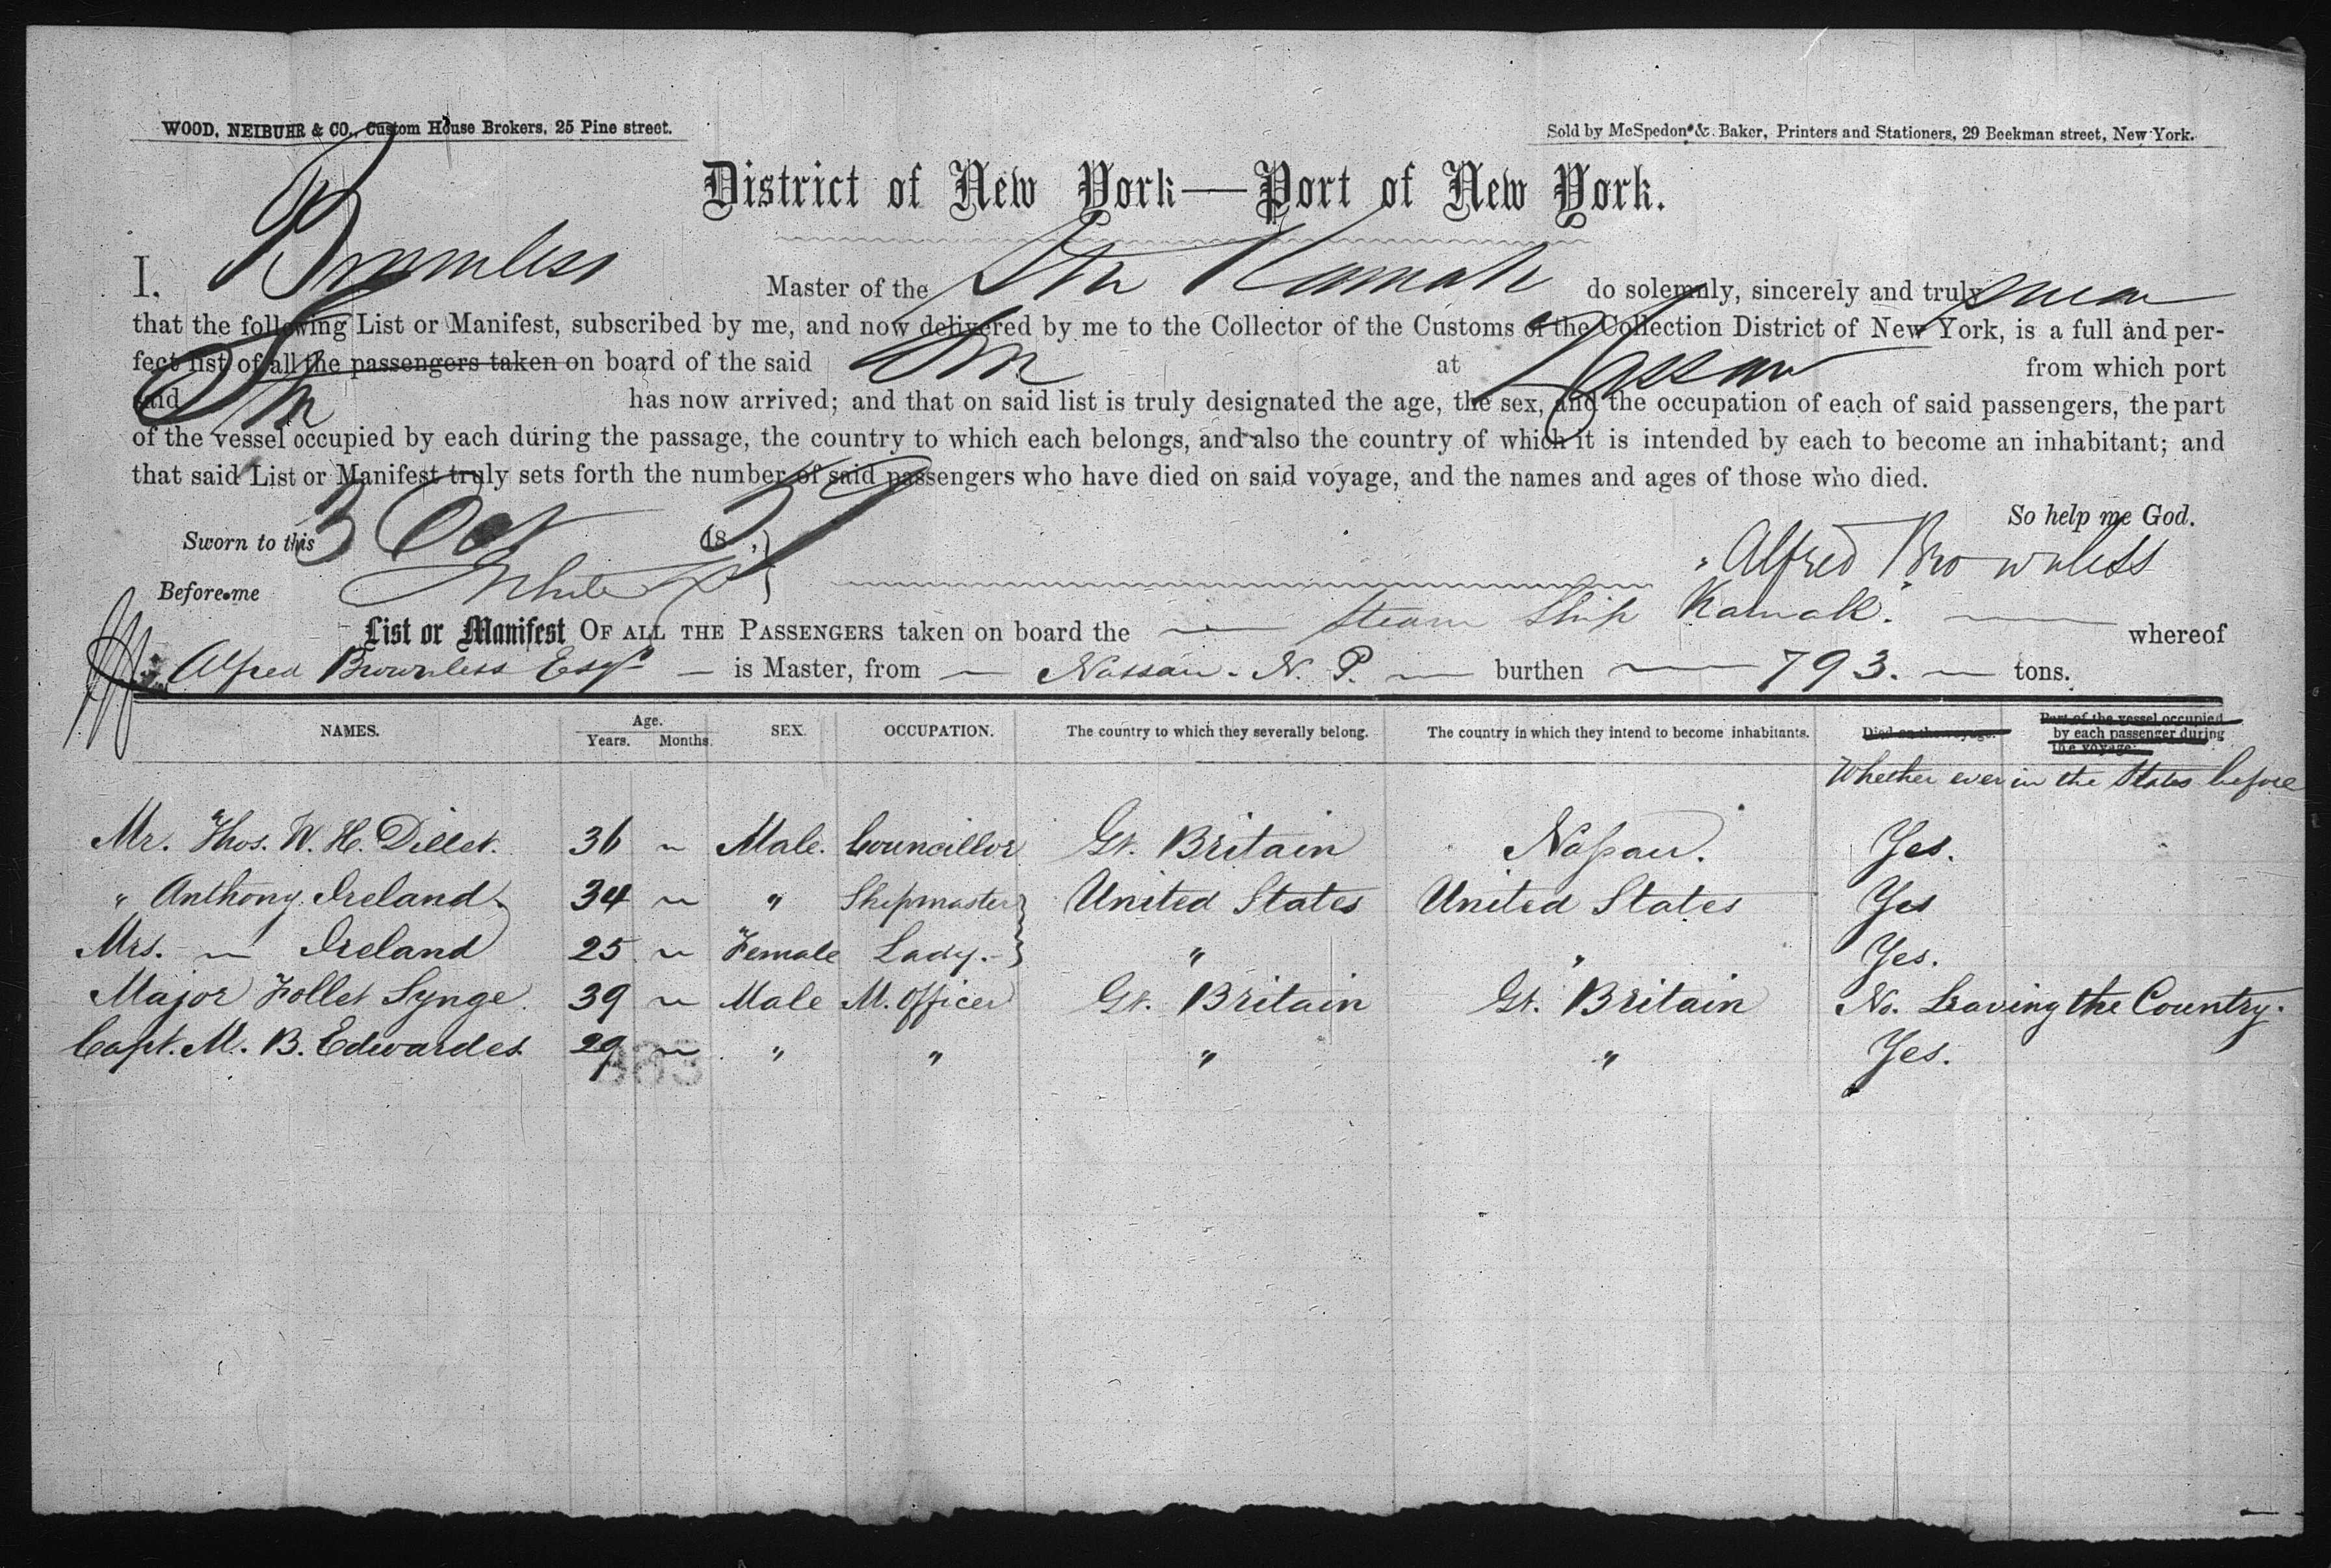 WOOD, NEIBUHR & CO., Custom House Brokers, 25 Pine street.
Sold by McSpedon & Baker, Printers and Stationers, 29 Beekman street, New York.
District of New York—Port of New York.
I, Brownless Master of the Str Karnak do solemnly, sincerely and truly swear
that the following List or Manifest, subscribed by me, and now delivered by me to the Collector of the Customs of the Collection District of New York, is a full and per-
fect list of all the passengers taken on board of the said Str at Nassau from which port
said Str has now arrived; and that on said list is truly designated the age, the sex, and the occupation of each of said passengers, the part
of the vessel occupied by each during the passage, the country to which each belongs, and also the country of which it is intended by each to become an inhabitant; and
that said List or Manifest truly sets forth the number of said passengers who have died on said voyage, and the names and ages of those who died.
So help me God.
Sworn to this 3 Oct 1859
Alfred Brownless
Before me White
List or Manifest OF ALL THE PASSENGERS taken on board the Steam Ship Karnak. whereof
Alfred Brownless Esqr is Master, from Nassau. N. P. burthen 793. tons.
NAMES. Age. Years. Months. SEX. OCCUPATION. The country to which they severally belong. The country in which they intend to become inhabitants. Died on the voyage. Part of the vessel occupied by each passenger during the voyage.
Whether ever in the States before
Mr. Thos. W. H. Dillet. 36 ~ Male. Councillor Gt. Britain Nassau. Yes.
" Anthony Ireland 34 ~ " Shipmaster United States United States Yes
Mrs. ~ Ireland 25 ~ Female Lady. " " Yes.
Major Follet Synge. 39 ~ Male M. Officer Gt. Britain Gt. Britain No. Leaving the Country.
Capt. M. B. Edwardes 29 ~ " " " " Yes.
883